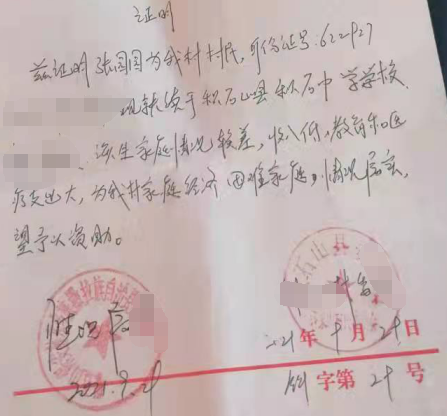 证明
兹证明张园园为我村村民,身份证号:622927
现就读于积石山县积石中学学校,
该生家庭情况较差,收入低,教育和医
疗支出大,为我村家庭经济困难家庭,情况属实,
望予以资助。
族自治
石山县
情况属
2021.9.29
2021年9月29日
字第29号